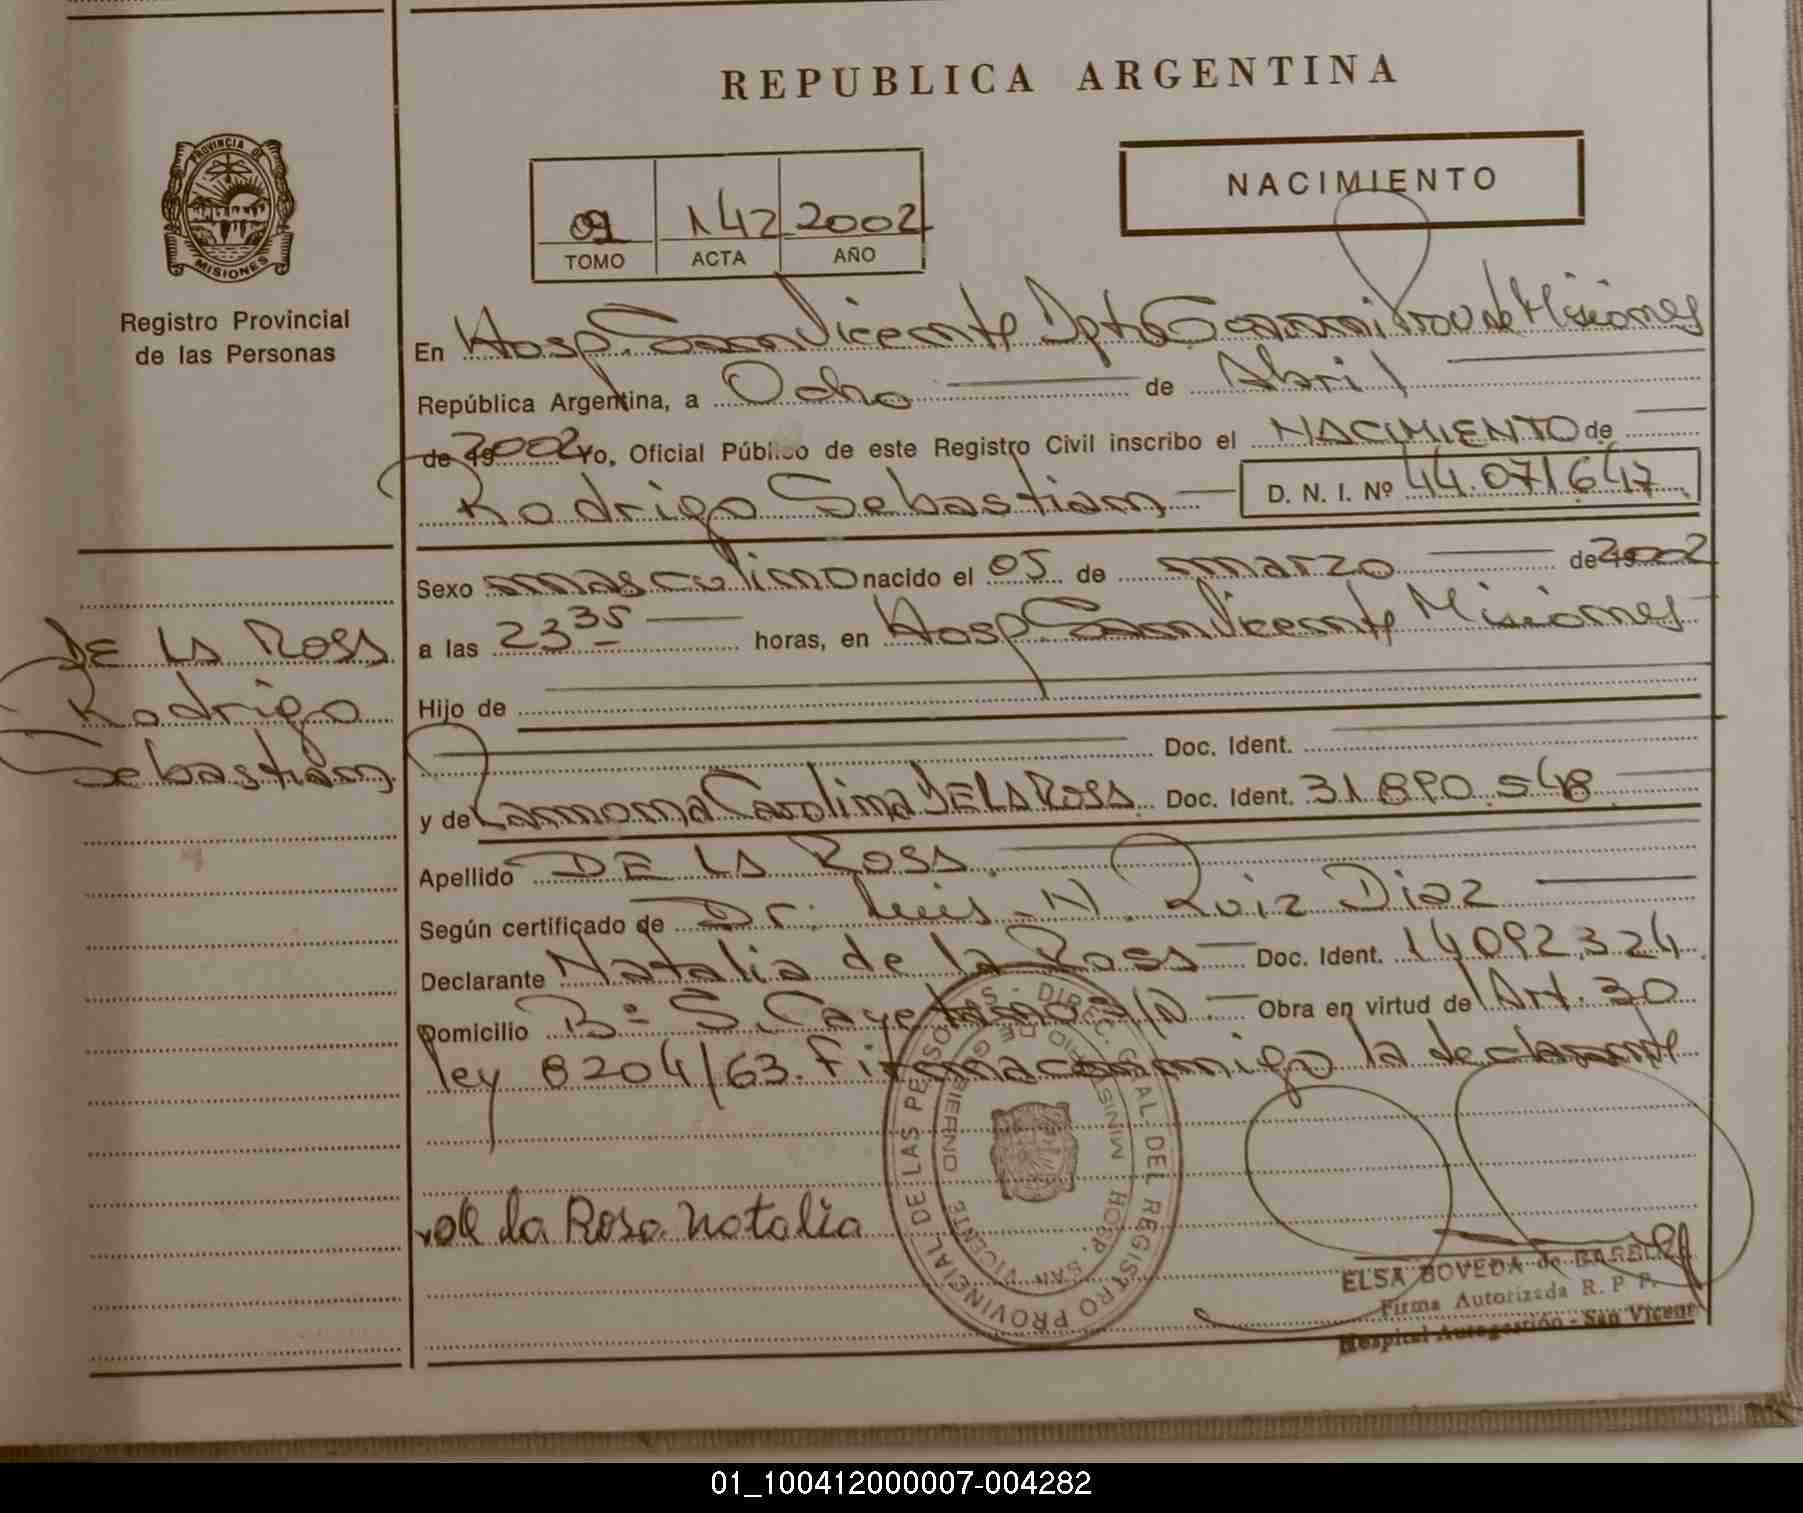 REPUBLICA ARGENTINA
PROVINCIA DE MISIONES
Registro Provincial
de las Personas
NACIMIENTO
09 142 2002
TOMO ACTA AÑO
En Hosp. San Vicente Dpto Guarani Prov de Misiones
República Argentina, a Ocho de Abril
de 19 2002 Yo, Oficial Público de este Registro Civil inscribo el NACIMIENTO de
Rodrigo Sebastian D. N. I. Nº 44.071647
Sexo masculino nacido el 05 de marzo de 19 2002
a las 23 35 horas, en Hosp San Vicente Misiones
Hijo de
Doc. Ident.
y de Ramona Carolina DE LA ROSA Doc. Ident. 31.890.548
Apellido DE LA ROSA
Según certificado de Dr. Luis N. Ruiz Diaz
Declarante Natalia de la Rosa Doc. Ident. 14092.324
Domicilio Bº S. Cayetano S/N Obra en virtud de Art. 30
ley 8204/63. Firma conmigo la declarante
DE LA ROSA
Rodrigo
Sebastian
de la Rosa Natalia
DIREC. GRAL DEL REGISTRO PROVINCIAL DE LAS PERSONAS
MINISTERIO DE GOBIERNO
HOSP. SAN VICENTE
ELSA BOVEDA de
Firma Autorizada R. P. P.
Hospital Autogestión - San Vicente
01_100412000007-004282